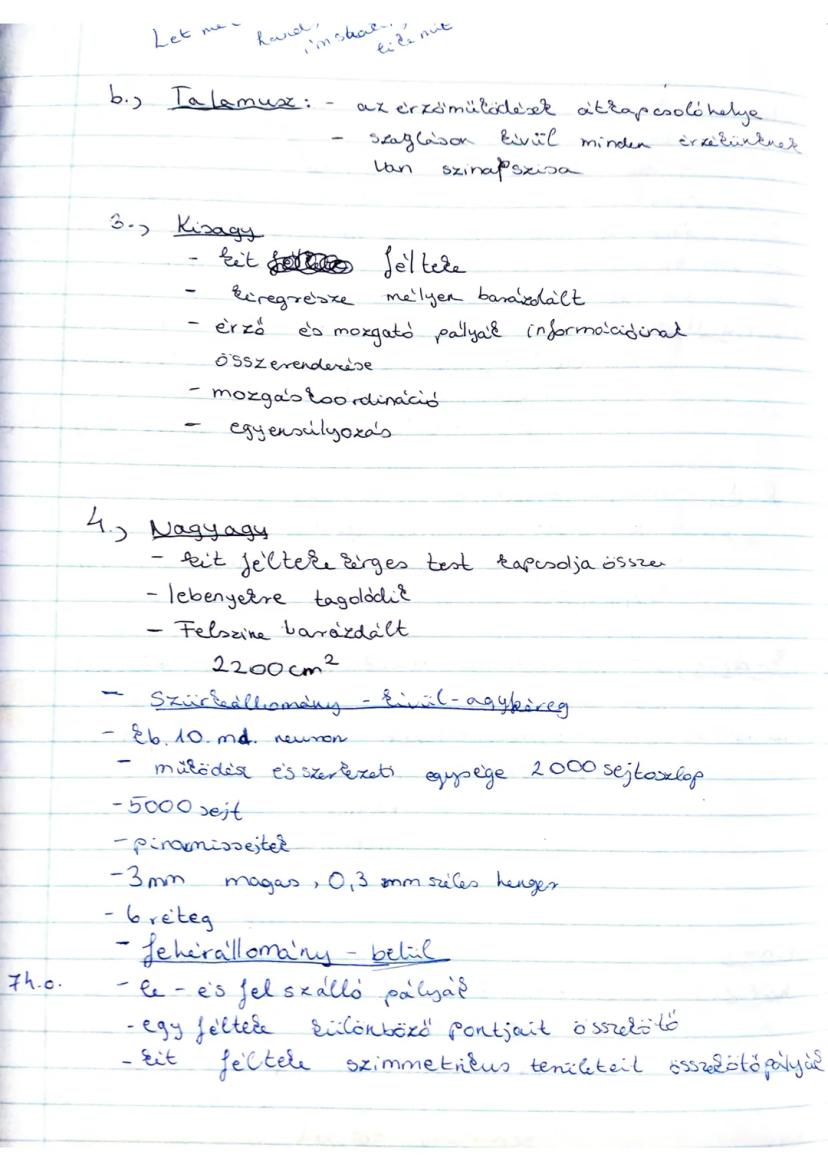 Let me
hand,
b.) Talamusz: - az érzőműködések átkapcsolóhelye
- szagláson kívül minden érzékünknek
van szinapszisa
3.) Kisagy
- két félteke
- kéregrésze mélyen barázdált
- érző és mozgató pályák információinak
összerendezése
- mozgáskoordináció
- egyensúlyozás
4.) Nagyagy
- két félteke kérges test kapcsolja össze
- lebenyekre tagolódik
- Felszíne barázdált
2200 cm²
- Szürkeállomány - kívül - agykéreg
- kb. 10. md. neuron
- működési és szerkezeti egysége 2000 sejtoszlop
- 5000 sejt
- piramissejtek
- 3 mm magas, 0,3 mm széles henger
- 6 réteg
- fehérállomány - belül
7h.o. - le - és felszálló pályák
- egy félteke különböző pontjait összekötő
- két félteke szimmetrikus területeit összekötő pályák